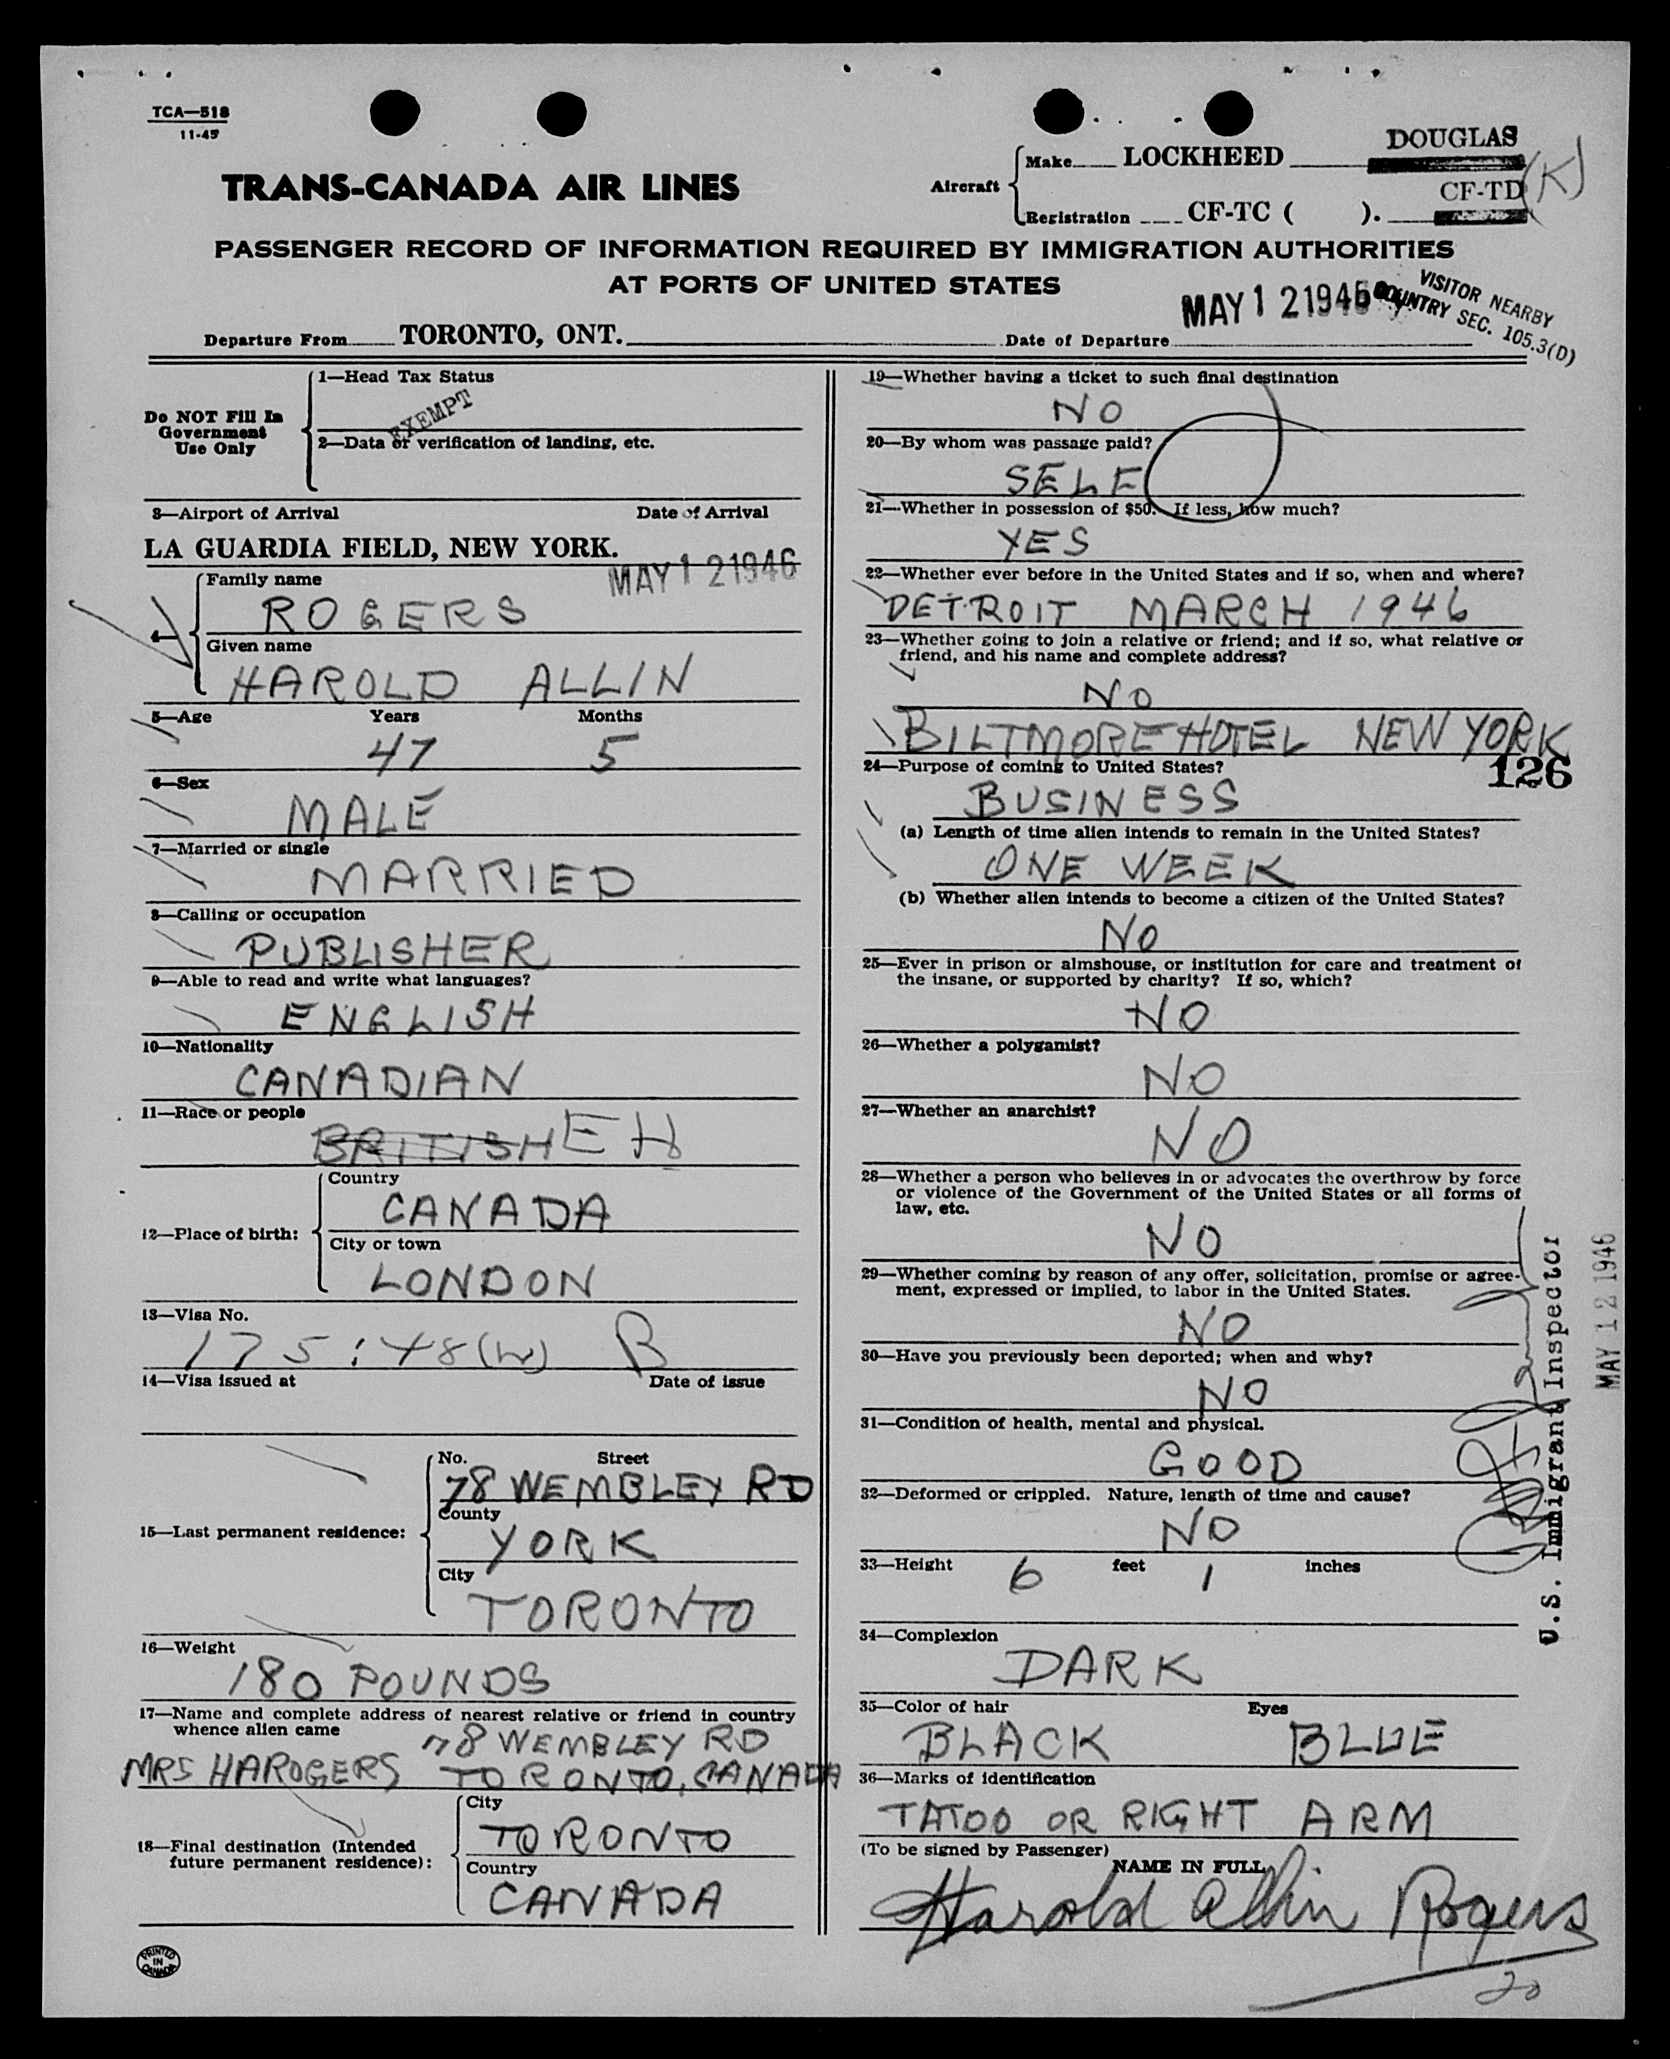 TCA—518
11-45
TRANS-CANADA AIR LINES
Aircraft
Make LOCKHEED DOUGLAS
Registration CF-TC ( ). CF-TD (K)
PASSENGER RECORD OF INFORMATION REQUIRED BY IMMIGRATION AUTHORITIES
AT PORTS OF UNITED STATES
VISITOR NEARBY
COUNTRY SEC. 105.3(D)
Departure From TORONTO, ONT. Date of Departure MAY 12 1946
Do NOT Fill In
Government
Use Only
1—Head Tax Status
EXEMPT
2—Data or verification of landing, etc.
3—Airport of Arrival Date of Arrival
LA GUARDIA FIELD, NEW YORK. MAY 12 1946
4—
Family name
ROGERS
Given name
HAROLD ALLIN
5—Age Years Months
47 5
6—Sex
MALE
7—Married or single
MARRIED
8—Calling or occupation
PUBLISHER
9—Able to read and write what languages?
ENGLISH
10—Nationality
CANADIAN
11—Race or people
BRITISH EH
12—Place of birth:
Country
CANADA
City or town
LONDON
13—Visa No.
175:48(W) B
14—Visa issued at Date of issue
15—Last permanent residence:
No. Street
78 WEMBLEY RD
County
YORK
City
TORONTO
16—Weight
180 POUNDS
17—Name and complete address of nearest relative or friend in country
whence alien came
78 WEMBLEY RD
MRS HAROGERS TORONTO, CANADA
18—Final destination (Intended
future permanent residence):
City
TORONTO
Country
CANADA
PRINTED
IN
CANADA
19—Whether having a ticket to such final destination
NO
20—By whom was passage paid?
SELF
21—Whether in possession of $50. If less, how much?
YES
22—Whether ever before in the United States and if so, when and where?
DETROIT MARCH 1946
23—Whether going to join a relative or friend; and if so, what relative or
friend, and his name and complete address?
NO
BILTMORE HOTEL NEW YORK
126
24—Purpose of coming to United States?
BUSINESS
(a) Length of time alien intends to remain in the United States?
ONE WEEK
(b) Whether alien intends to become a citizen of the United States?
NO
25—Ever in prison or almshouse, or institution for care and treatment of
the insane, or supported by charity? If so, which?
NO
26—Whether a polygamist?
NO
27—Whether an anarchist?
NO
28—Whether a person who believes in or advocates the overthrow by force
or violence of the Government of the United States or all forms of
law, etc.
NO
29—Whether coming by reason of any offer, solicitation, promise or agree-
ment, expressed or implied, to labor in the United States.
NO
30—Have you previously been deported; when and why?
NO
31—Condition of health, mental and physical.
GOOD
32—Deformed or crippled. Nature, length of time and cause?
NO
33—Height 6 feet 1 inches
34—Complexion
DARK
35—Color of hair Eyes
BLACK BLUE
36—Marks of identification
TATOO OR RIGHT ARM
(To be signed by Passenger)
NAME IN FULL
Harold Allin Rogers
20
U.S. Immigrant Inspector
MAY 12 1946